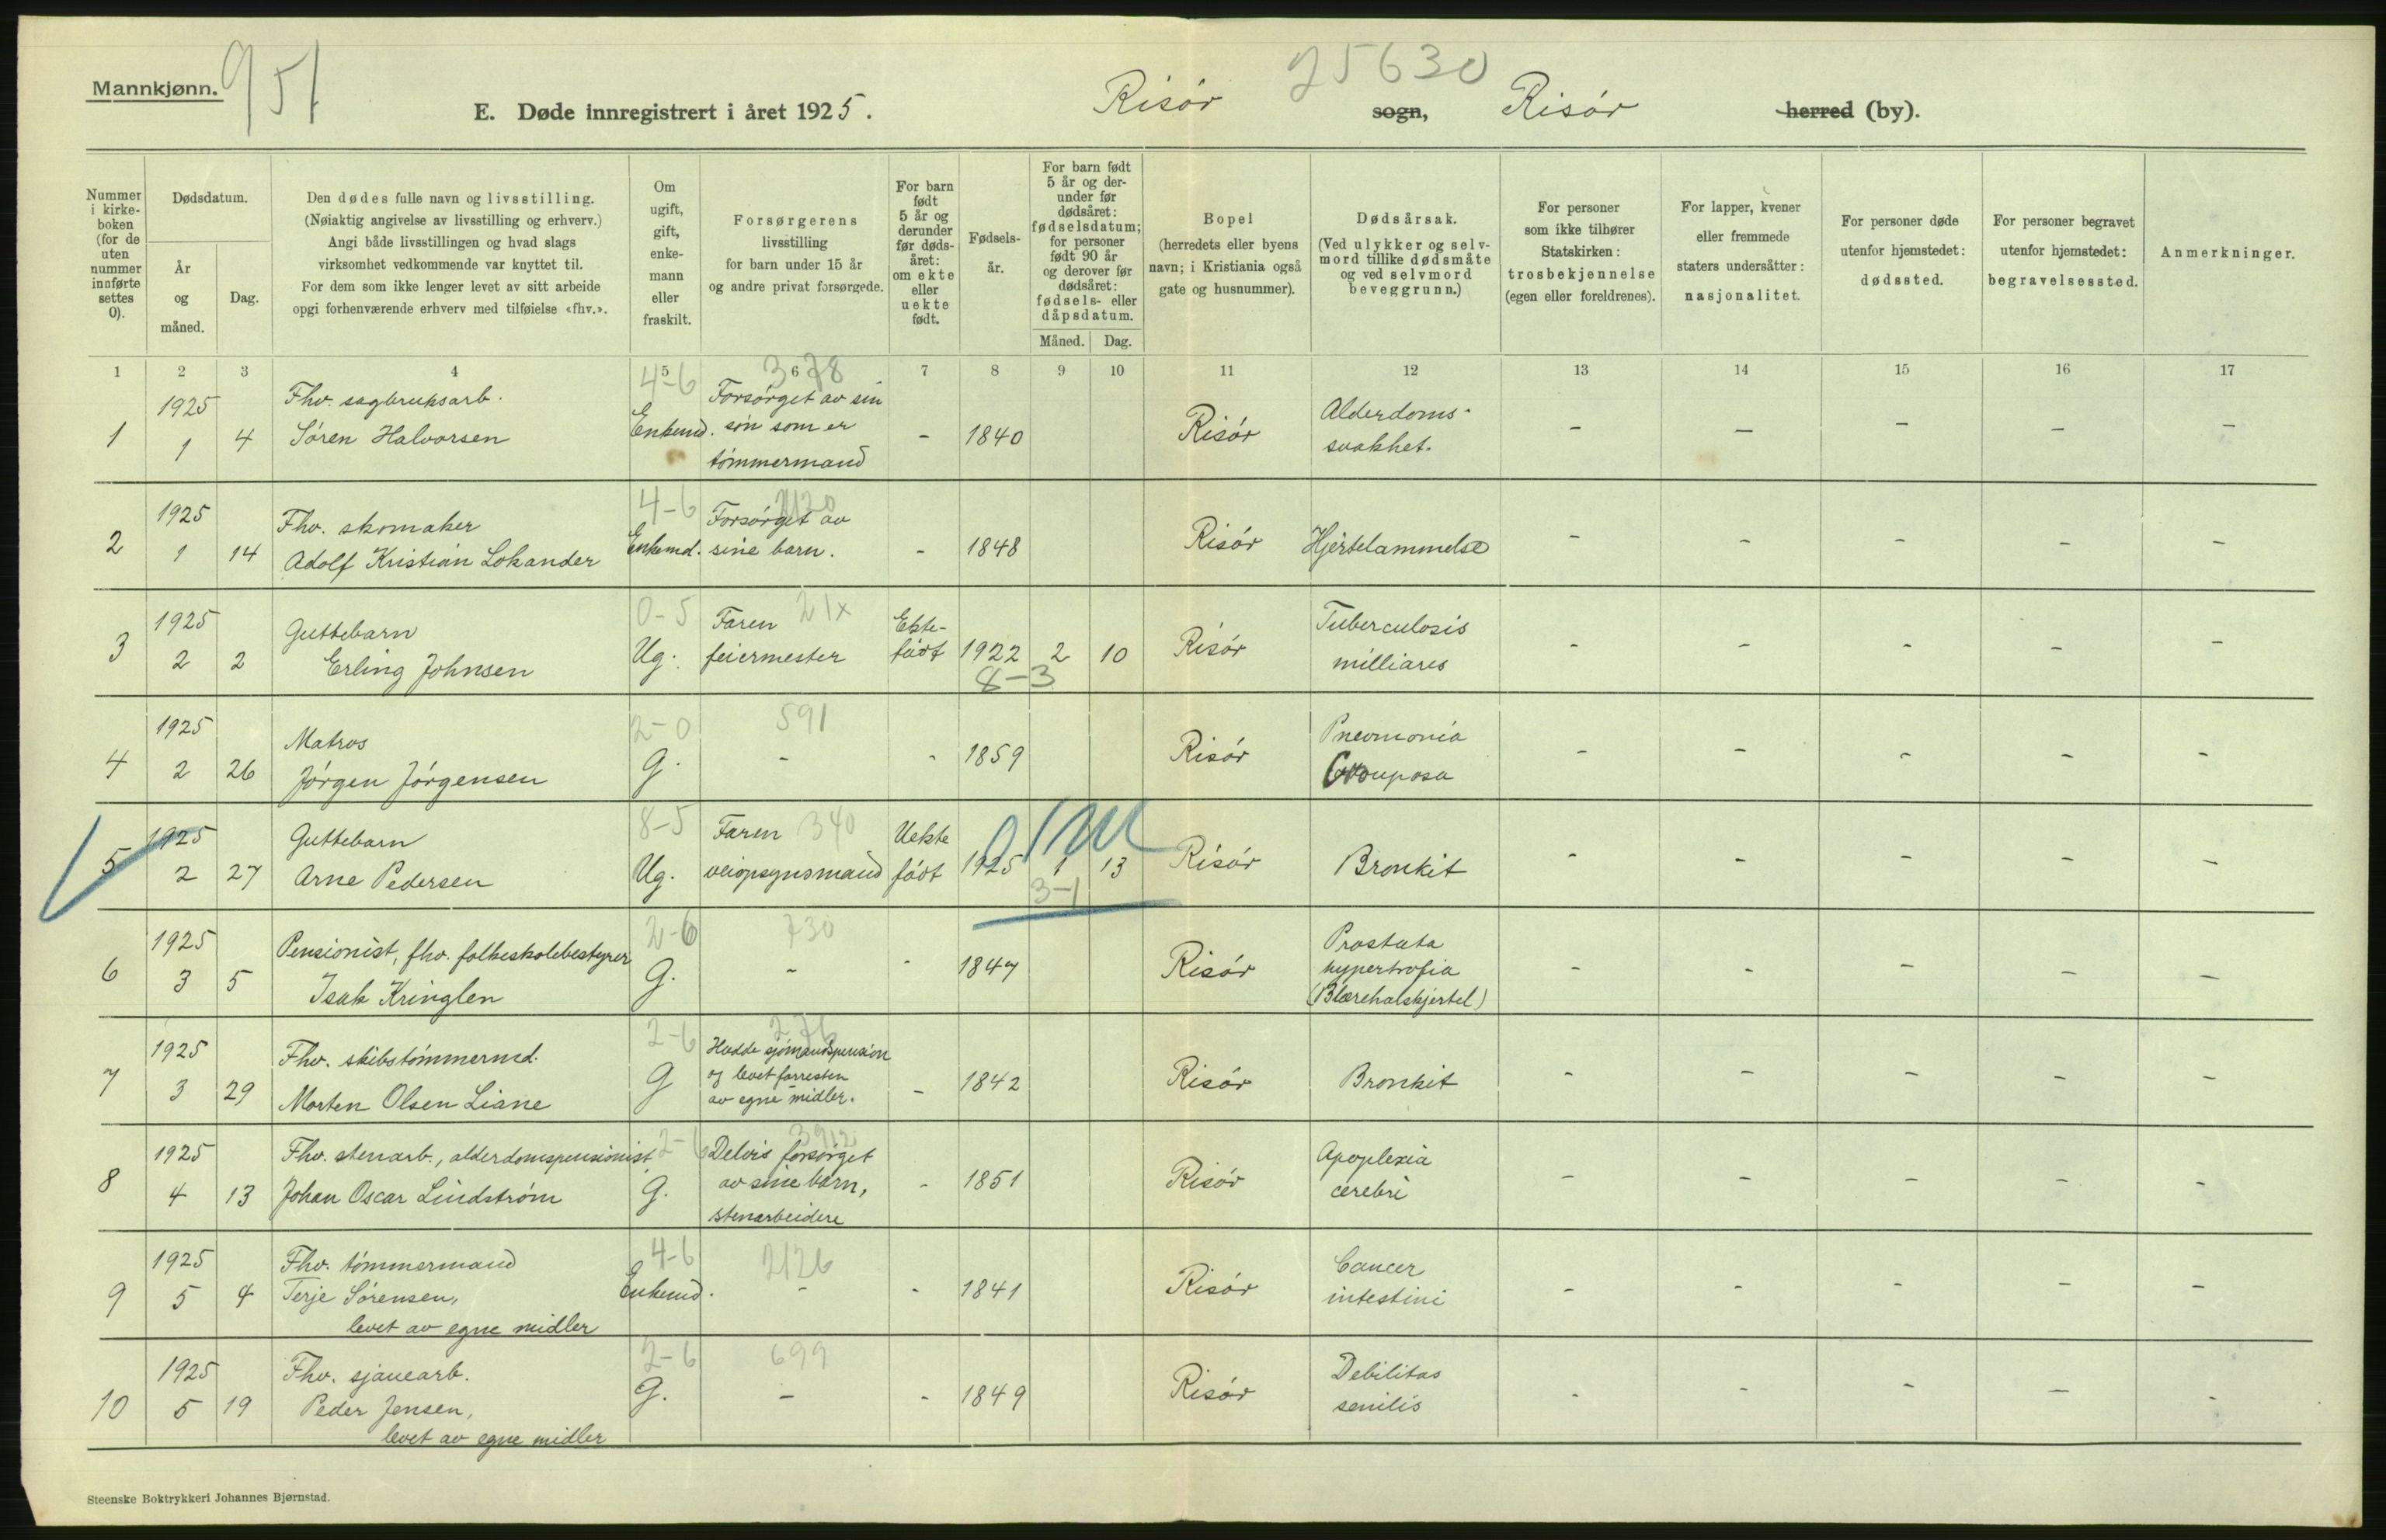 Mannkjønn.
951
25630
E. Døde innregistrert i året 1925.
Risør sogn, Risør herred (by).
Nummer i kirkeboken (for de uten nummer innførte settes 0).
Dødsdatum.
År og måned.
Dag.
Den dødes fulle navn og livsstilling.
(Nøiaktig angivelse av livsstilling og erhverv.)
Angi både livsstillingen og hvad slags
virksomhet vedkommende var knyttet til.
For dem som ikke lenger levet av sitt arbeide
opgi forhenværende erhverv med tilføielse «fhv.».
Om ugift, gift, enkemann eller fraskilt.
Forsørgerens
livsstilling
for barn under 15 år
og andre privat forsørgede.
For barn født 5 år og derunder før dødsåret: om ekte eller uekte født.
Fødselsår.
For barn født 5 år og derunder før dødsåret: fødselsdatum; for personer født 90 år og derover før dødsåret: fødsels- eller dåpsdatum.
Måned.
Dag.
Bopel
(herredets eller byens
navn; i Kristiania også
gate og husnummer).
Dødsårsak.
(Ved ulykker og selvmord tillike dødsmåte
og ved selvmord
beveggrunn.)
For personer
som ikke tilhører
Statskirken:
trosbekjennelse
(egen eller foreldrenes).
For lapper, kvener
eller fremmede
staters undersåtter:
nasjonalitet.
For personer døde
utenfor hjemstedet:
dødssted.
For personer begravet
utenfor hjemstedet:
begravelsessted.
Anmerkninger.
1 2 3 4 5 6 7 8 9 10 11 12 13 14 15 16 17
1 1925 1 4 Fhv. sagbruksarb. Sören Halvorsen 4-6 Enkemd. 378 Forsörget av sin sön som er tömmermand - 1840 Risör Alderdomssvakhet. - - - - -
2 1925 1 14 Fhv. skomaker Adolf Kristian Lokander 4-6 Enkemd. Forsörget av sine barn. - 1848 Risör Hjertelammelse - - - - -
3 1925 2 2 Guttebarn Erling Johnsen 0-5 Ug. Faren 21x feiermester Ektefödt 1922 2 10 8-3 Risör Tuberculosis milliares - - - - -
4 1925 2 26 Matros Jörgen Jörgensen 2-0 G. 591 - - 1859 Risör Pneumonia Crouposa - - - - -
5 1925 2 27 Guttebarn Arne Pedersen 8-5 Ug. Faren 340 veiopsynsmand Uekte födt 1925 1 13 3-1 Risör Bronkit - - - - -
6 1925 3 5 Pensionist, fhv. folkeskolebestyrer Isak Kringlen 2-6 G. 730 - - 1847 Risör Prostata hypertrofia (Blærehalskjertel) - - - - -
7 1925 3 29 Fhv. skibstömmermd. Morten Olsen Liane 2-6 G 276 Hadde sjömandspension og levet forresten av egne midler. - 1842 Risör Bronkit - - - - -
8 1925 4 13 Fhv. stenarb., alderdomspensionist Johan Oscar Lindström 2-6 G. Delvis forsörget av sine barn, stenarbeidere - 1851 Risör Apoplexia cerebri - - - - -
9 1925 5 4 Fhv. tömmermand Terje Sörensen, levet av egne midler 4-6 Enkemd. 2126 - - 1841 Risör Cancer intestini - - - - -
10 1925 5 19 Fhv. sjauearb. Peder Jensen, levet av egne midler 2-6 G. 699 - - 1849 Risör Debilitas senilis - - - - -
Steenske Boktrykkeri Johannes Bjørnstad.